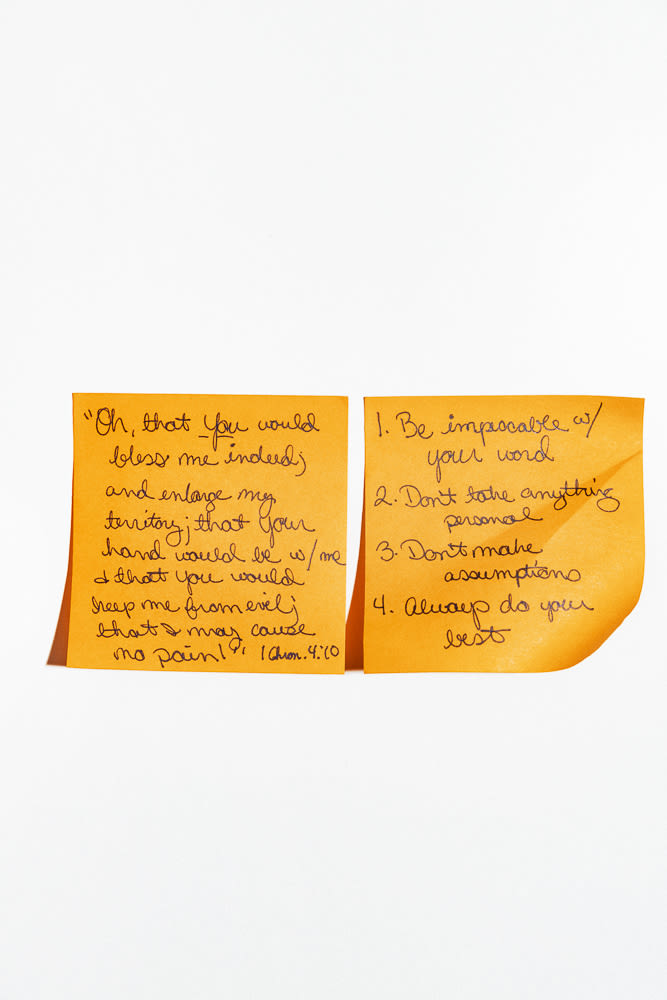 "Oh, that You would
bless me indeed;
and enlarge my
territory; that Your
hand would be w/me
& that You would
keep me from evil;
that I may cause
no pain!" 1 Chron. 4:10
1. Be impeccable w/
your word
2. Don't take anything
personal
3. Don't make
assumptions
4. Always do your
best